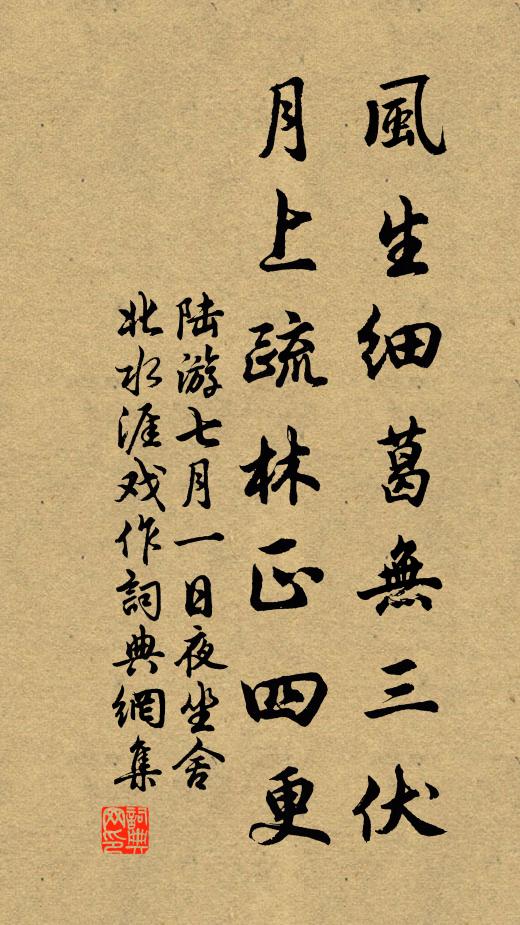 風生細葛無三伏
月上疏林正四更
陆游七月一日夜坐舍
北水涯戏作詞典網集
詞典网印